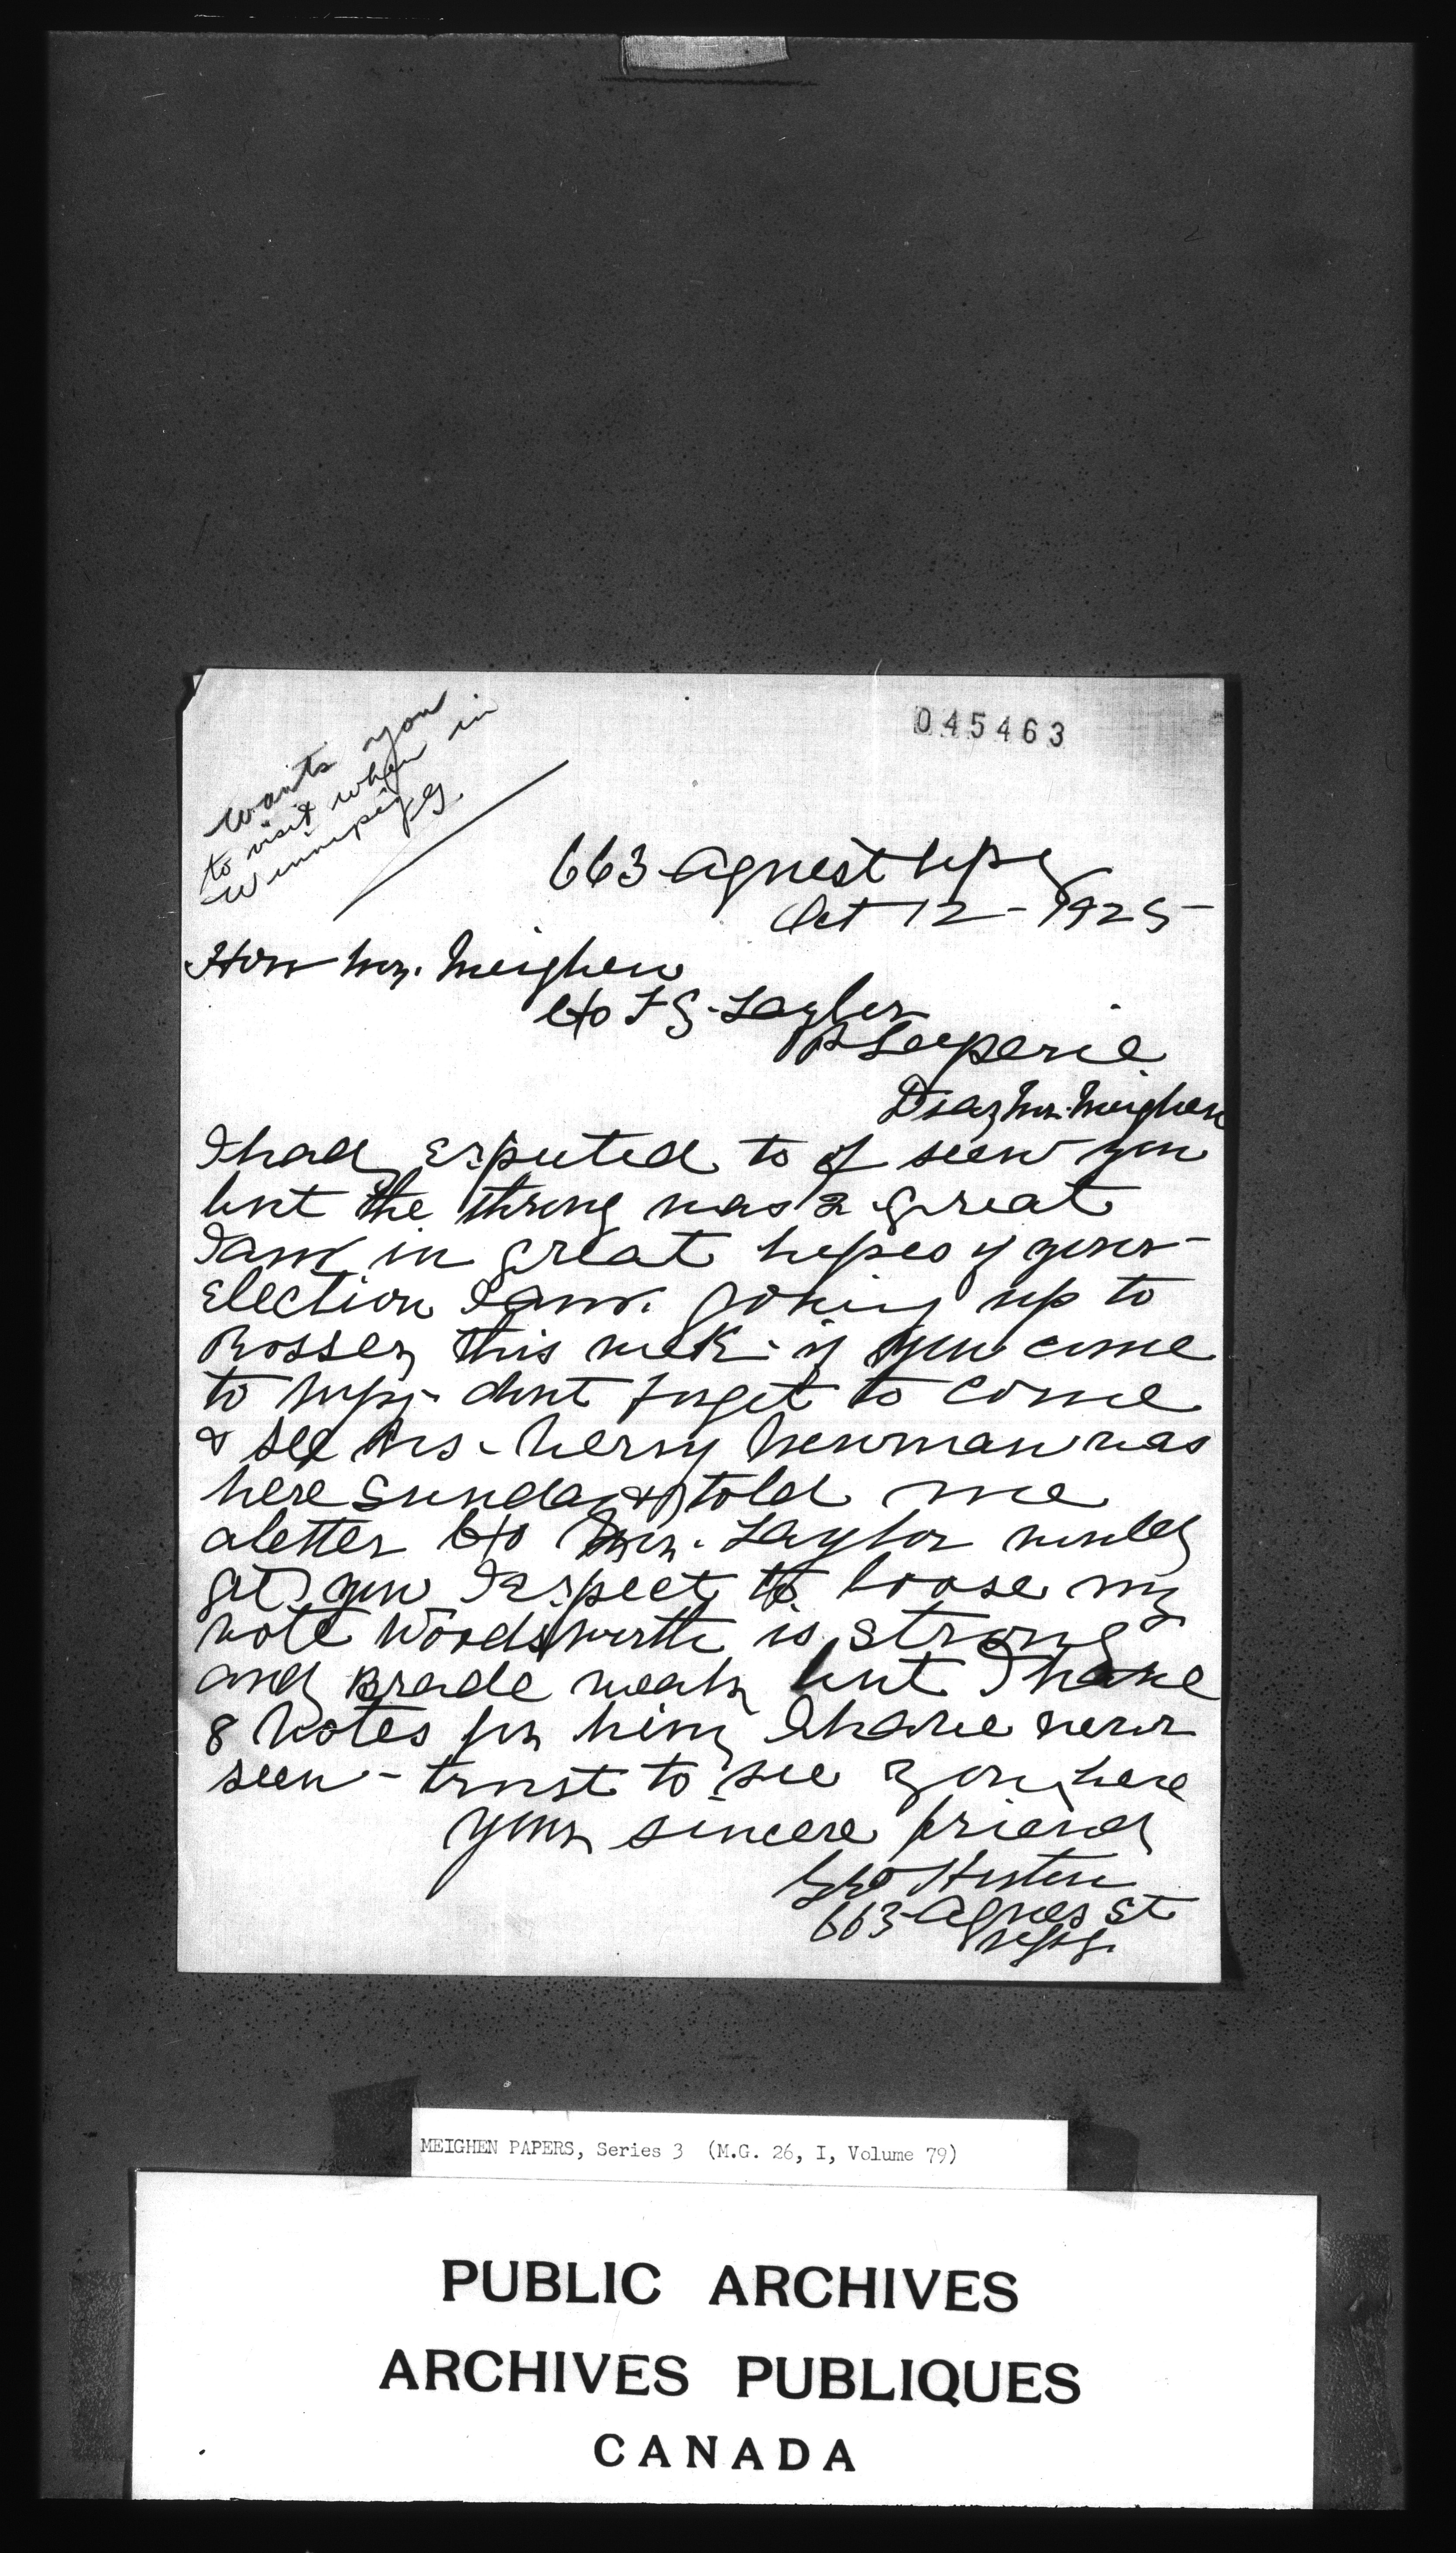 wants you
to visit when in
Winnipeg.
045463
663 Agnes st Wpg
Oct 12 - 1925
Hon Mr. Meighen
c/o F G. Taylor
P Laperie
Dear Mr. Meighen
I had expected to of seen you
but the throng was 2 great
I am in great hopes of your
Election I am. going up to
Rosser this week - if you come
to Wpg - dont forget to come
& see us - Henry Newman was
here Sunday & told me
a letter c/o Mr. Taylor would
get you I expect to loose my
vote Woodsworth is strong
and Brade weak but I have
8 votes for him I have never
seen - trust to see you here
your sincere friend
Geo
663 Agnes St
Wpg.
MEIGHEN PAPERS, Series 3 (M.G. 26, I, Volume 79)
PUBLIC ARCHIVES
ARCHIVES PUBLIQUES
CANADA